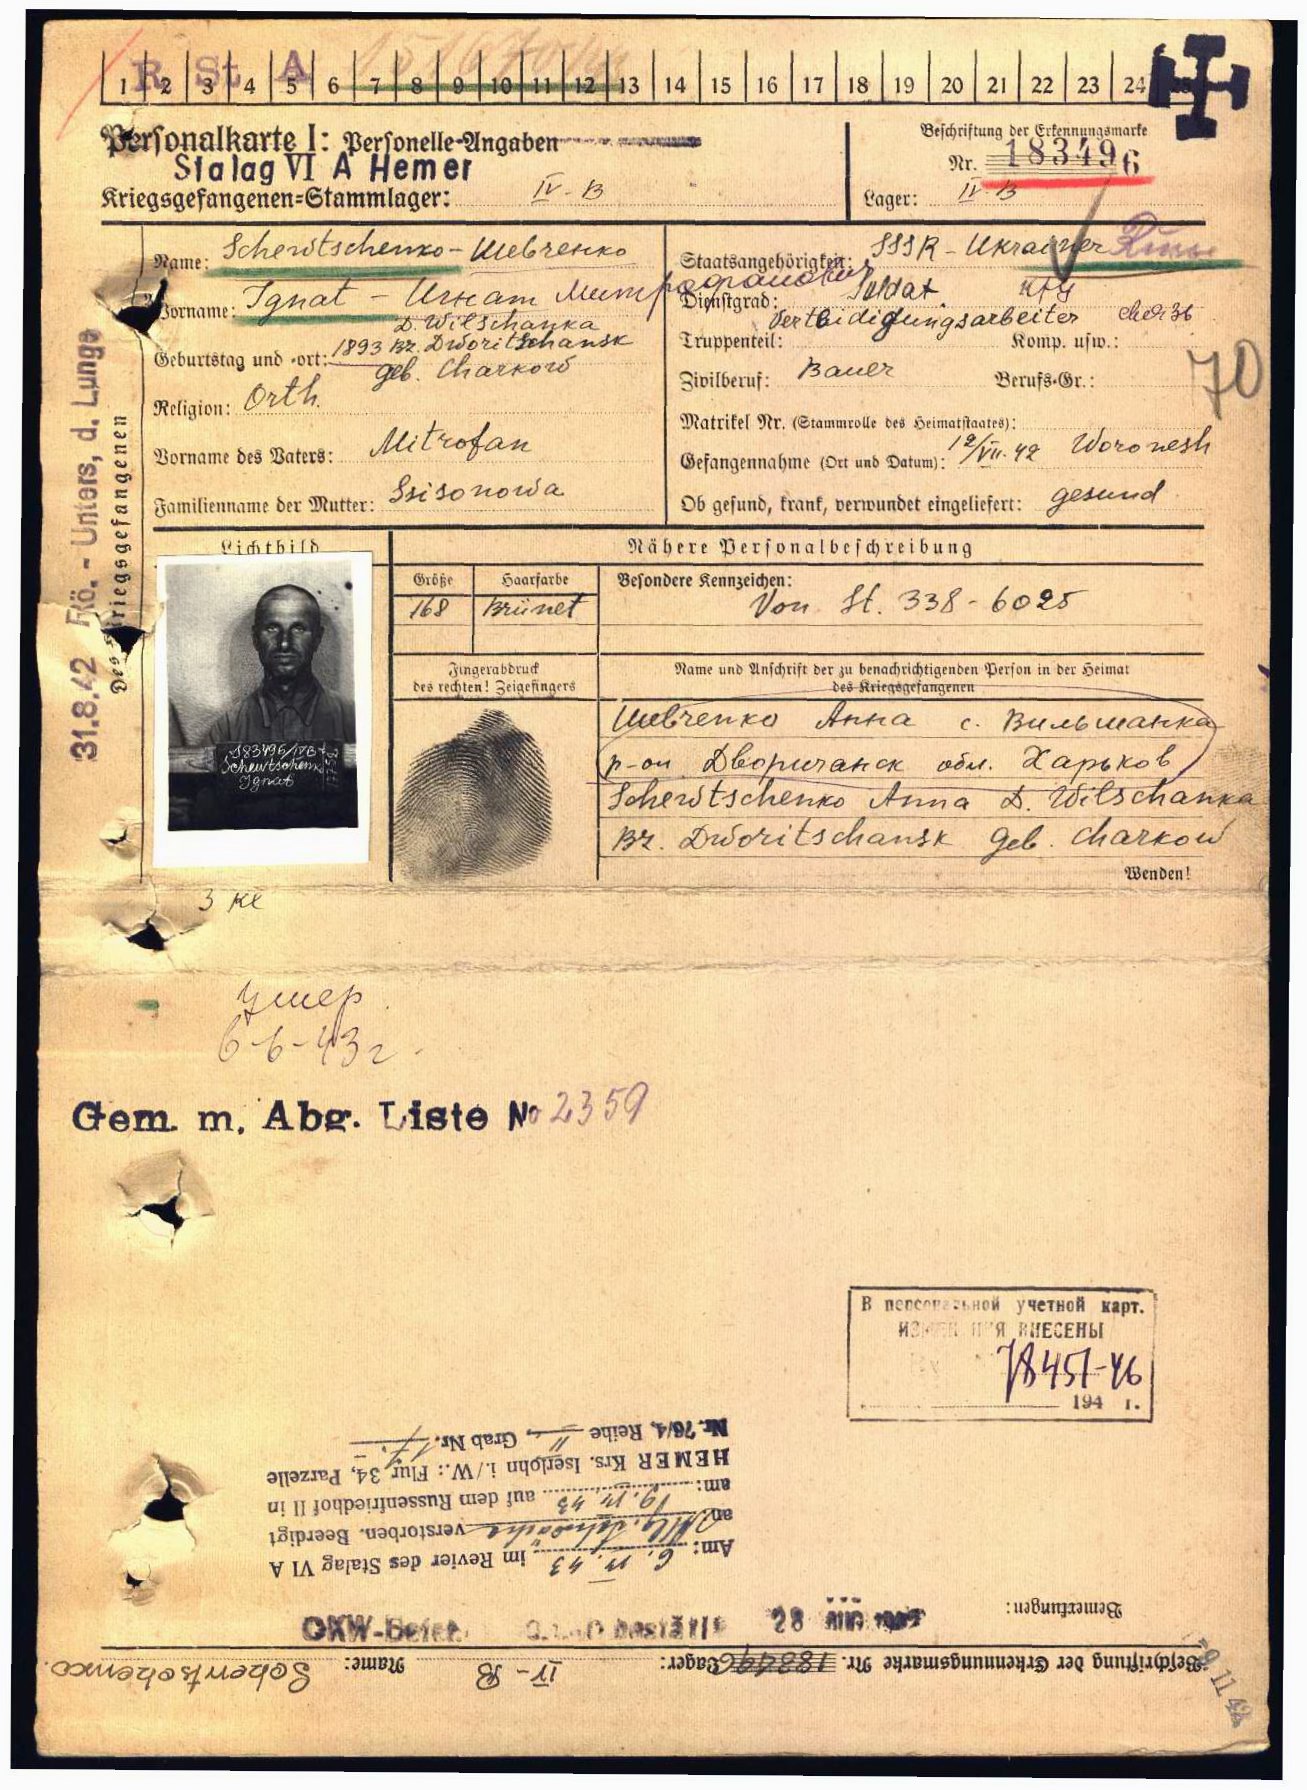 R St A
1 2 3 4 5 6 7 8 9 10 11 12 13 14 15 16 17 18 19 20 21 22 23 24
Personalkarte I: Personelle-Angaben
Stalag VI A Hemer
Kriegsgefangenen-Stammlager: IV-B
Beschriftung der Erkennungsmarke
Nr. 183496
Lager: IV-B
Name: Schewtschenko - Шевченко
Vorname: Ignat - Игнат Митрофанович
D. Wilschanka
Geburtstag und -ort: 1893 Bz. Dworitschansk
geb. Charkow
Religion: Orth.
Vorname des Vaters: Mitrofan
Familienname der Mutter: Ssisonowa
Staatsangehörigkeit: SSSR - Ukrainer
Dienstgrad: Soldat
Verteidigungsarbeiter
Truppenteil: Komp. usw.:
Zivilberuf: Bauer Berufs-Gr.:
70
Matrikel Nr. (Stammrolle des Heimatstaates):
Gefangennahme (Ort und Datum): 12/VII. 42 Woronesh
Ob gesund, krank, verwundet eingeliefert: gesund
31.8.42 Rö. - Unters. d. Lunge
Des Kriegsgefangenen
Lichtbild
Nähere Personalbeschreibung
Größe Haarfarbe
168 Brünet
Besondere Kennzeichen:
Von St. 338 - 6025
183496/IVB
Schewtschenko
Ignat
Fingerabdruck
des rechten! Zeigefingers
Name und Anschrift der zu benachrichtigenden Person in der Heimat
des Kriegsgefangenen
Шевченко Анна с. Вильшанка
р-он Дворичанск обл. Харьков
Schewtschenko Anna D. Wilschanka
Bz. Dworitschansk geb. Charkow
Wenden!
умер
6-6-43 г.
Gem. m. Abg. Liste No 2359
В персональной учетной карт.
ИЗМЕНЕНИЯ ВНЕСЕНЫ
78457-46
194 г.
Beschriftung der Erkennungsmarke Nr. 183496 Lager: IV-B Name: Schewtschenko.
Bemerkungen:
Am: im Revier des Stalag VI A
an: verstorben. Beerdigt
am: auf dem Russenfriedhof II in
HEMER Krs. Iserlohn i./W.: Flur 34, Parzelle
Nr. 76/4, Reihe II Grab Nr. 17.